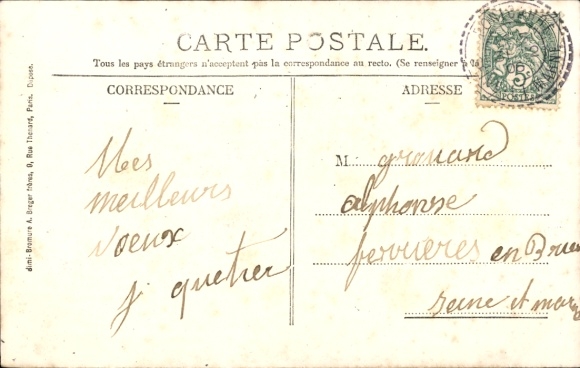 CARTE POSTALE.
Tous les pays étrangers n'acceptent pas la correspondance au recto. (Se renseigner
CORRESPONDANCE
ADRESSE
Mes
meilleurs
voeux
j quetier
M. granand
alphonse
ferrieres en Brie
seine et marn
dimi-Bromure A. Breger frères, 9, Rue Thénard, Paris. Dépose.
5
POSTES